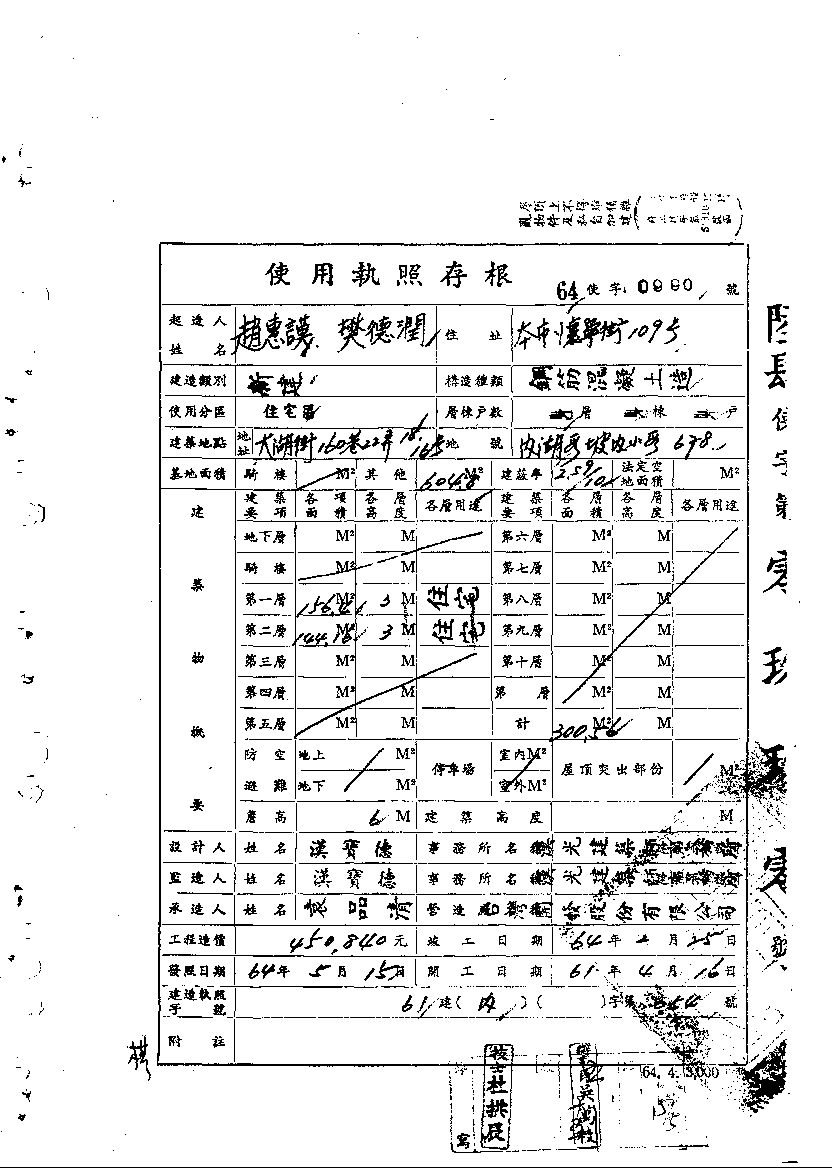 屋頂上不得搭構雜
亂物件及私自加建
使用執照存根
64 使字: 0990 號
起造人姓名 趙惠謨 樊德潤 住址 本市懷寧街109号
建造類別 新建 構造種類 鋼筋混凝土造
使用分區 住宅區 層棟戶數 層 棟 戶
建築地點 地址 大湖街160巷22弄18, 16号 地號 內湖 坡內小 678
基地面積 騎樓 M² 其他 604.8 M² 建蔽率 2.59/10 法定空地面積 M²
建築物概要
建築要項 各項面積 各層高度 各層用途 建築要項 各層面積 各層高度 各層用途
地下層 M² M 第六層 M² M
騎樓 M² M 第七層 M² M
第一層 156.41 M² 3 M 住宅 第八層 M² M
第二層 144.15 M² 3 M 住宅 第九層 M² M
第三層 M² M 第十層 M² M
第四層 M² M 第 層 M² M
第五層 M² M 計 300.56 M² M
防空避難 地上 M² 停車場 室內M² 屋頂突出部份 M²
地下 M² 室外M²
簷高 6 M 建築高度 M
設計人 姓名 漢寶德 事務所名稱 漢光建築師事務所
監造人 姓名 漢寶德 事務所名稱 漢光建築師事務所
承造人 姓名 袁品清 營造 股份有限公司
工程造價 450,840元 竣工日期 64年2月25日
發照日期 64年5月15日 開工日期 61年4月16日
建造執照字號 61建(內)( )字第 號
附註
64. 4. 3,000
技士杜拱辰
寫
使字第零玖玖零號